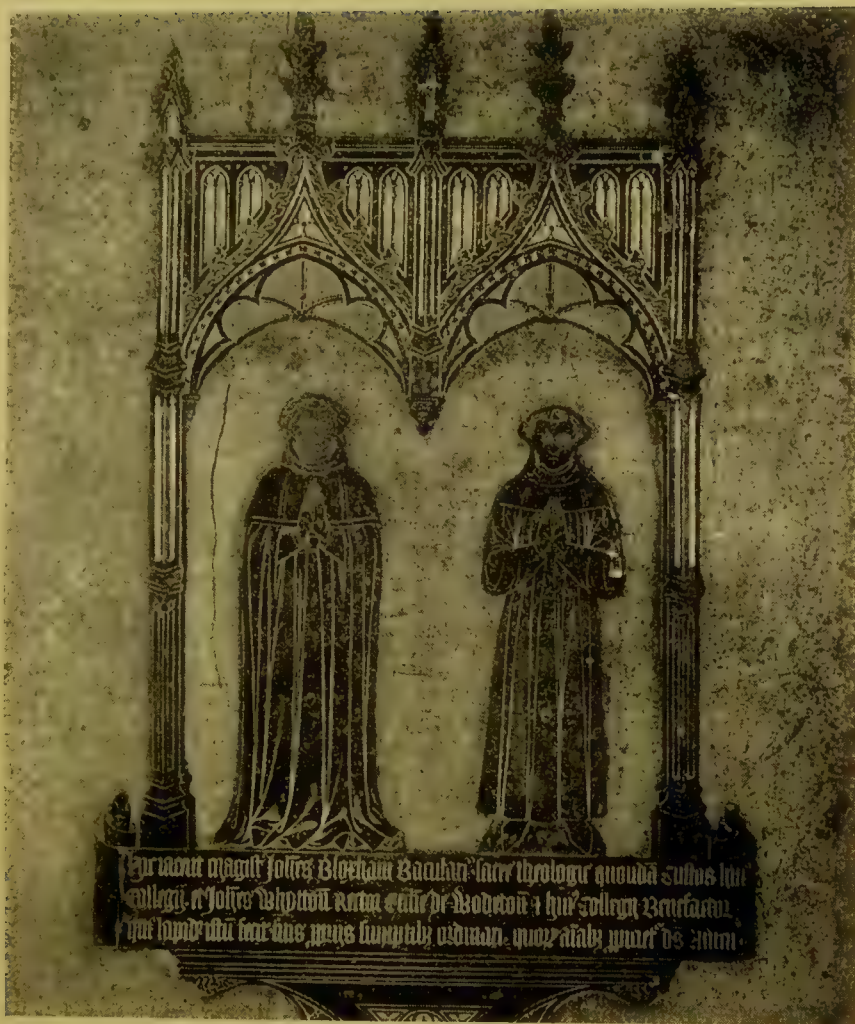 Hic iacent magistr Johes Bloxham Baculari sacre theologie quondā Custos hui
Collegij et Johes Whytton Rector ecclie de Wodeton & hui Collegij Benefactor
lapidē istū fecit suis ordinari quorū aīabȝ ds Amen